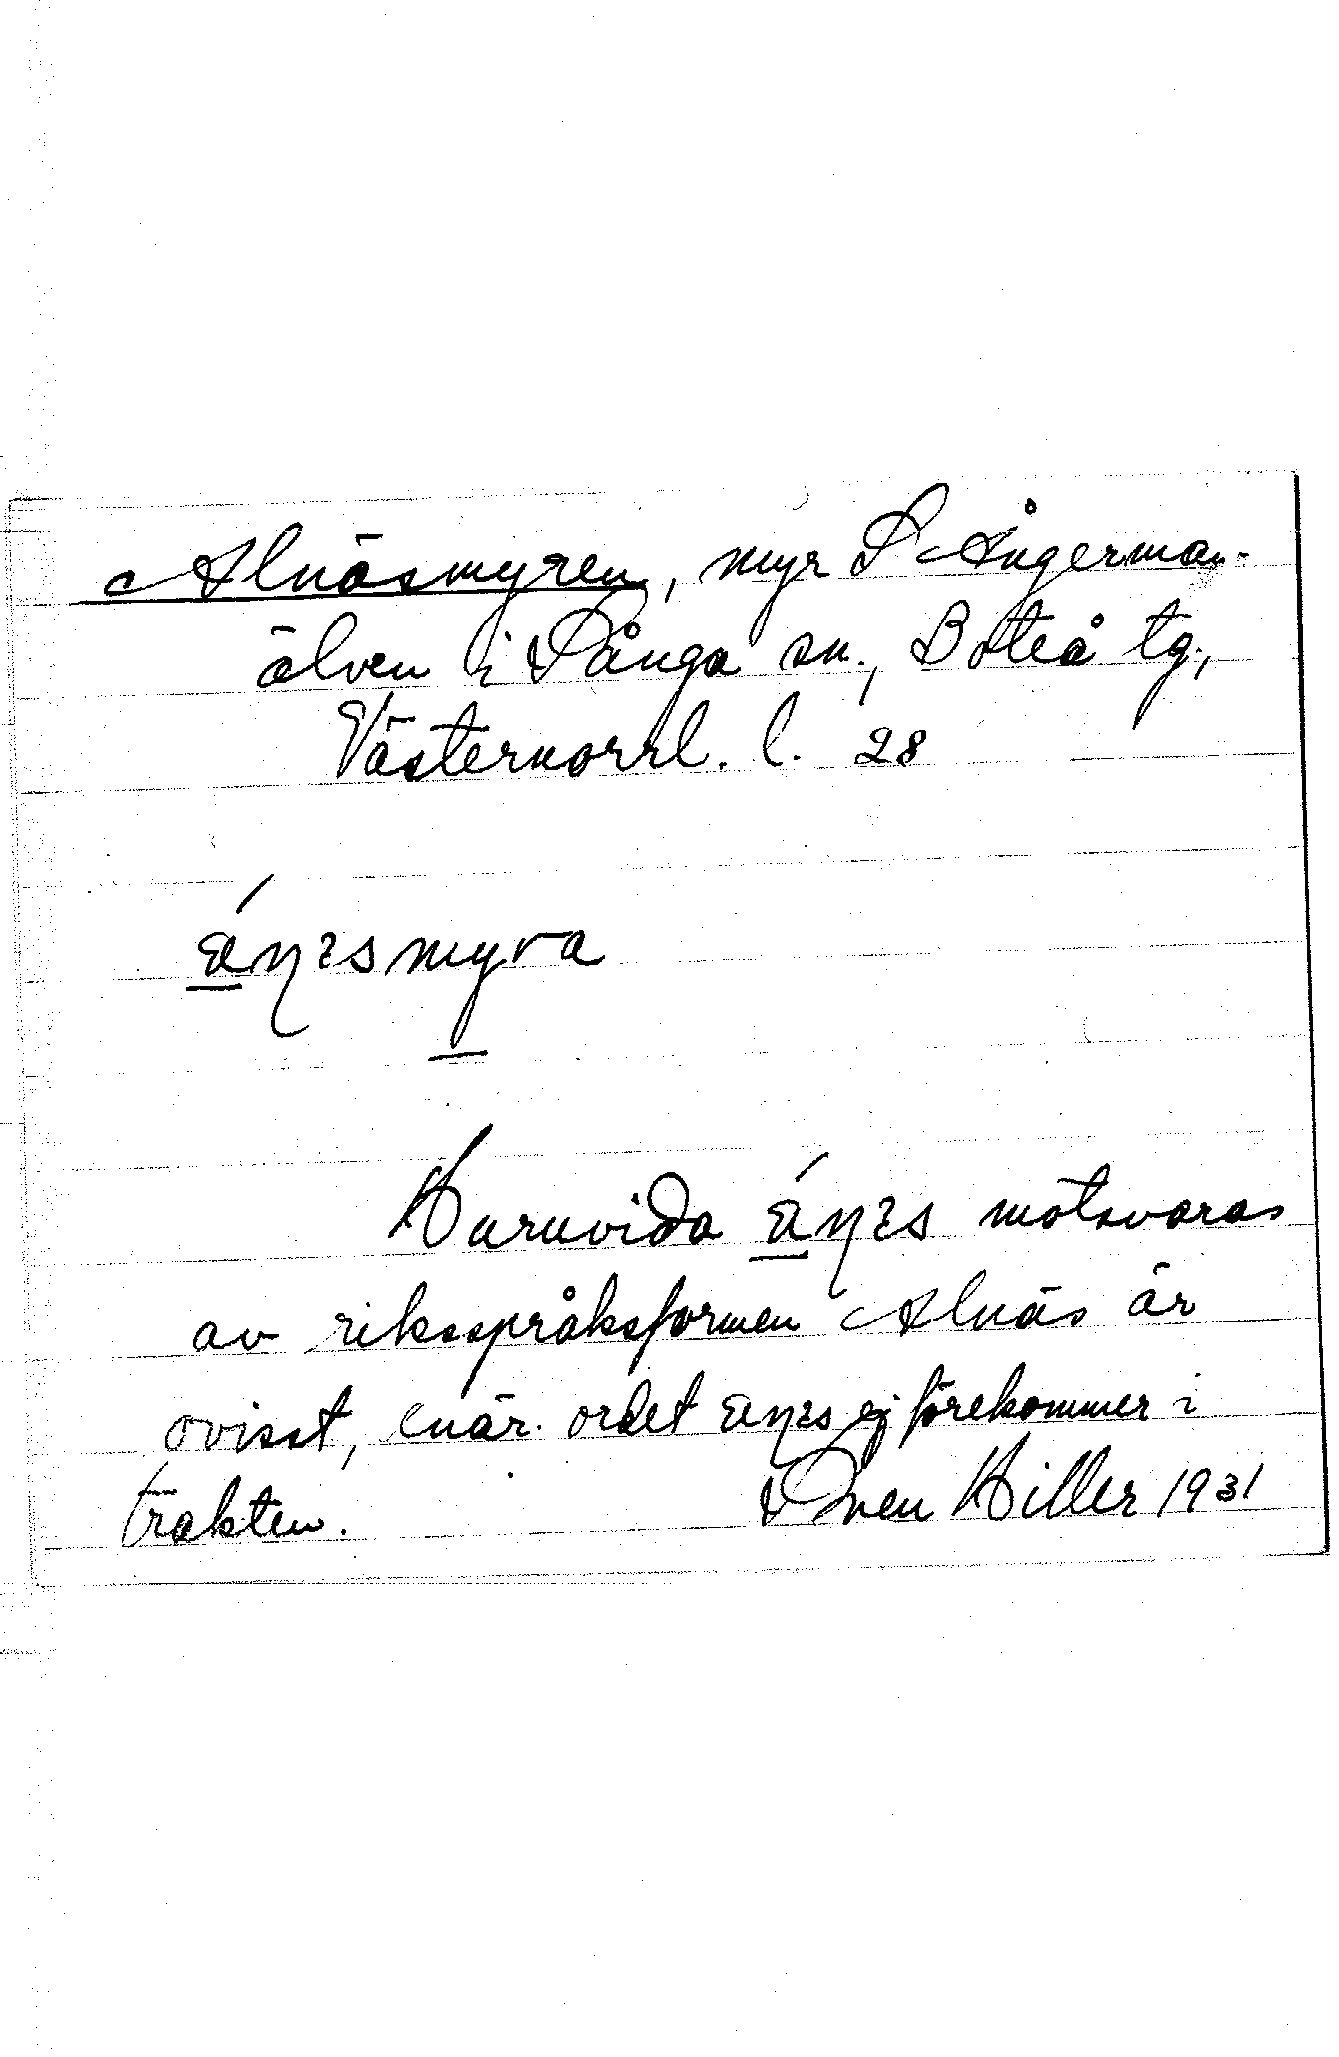 Alnäsmyren, myr S Ångerman-
älven i Sånga sn., Boteå tg.,
Västernorrl. l. 28
áŋɛsmyra
Huruvida áŋɛs motsvaras
av riksspråksformen Alnäs är
ovisst, enär ordet aŋɛs ej förekommer i
trakten. Sven Hiller 1931